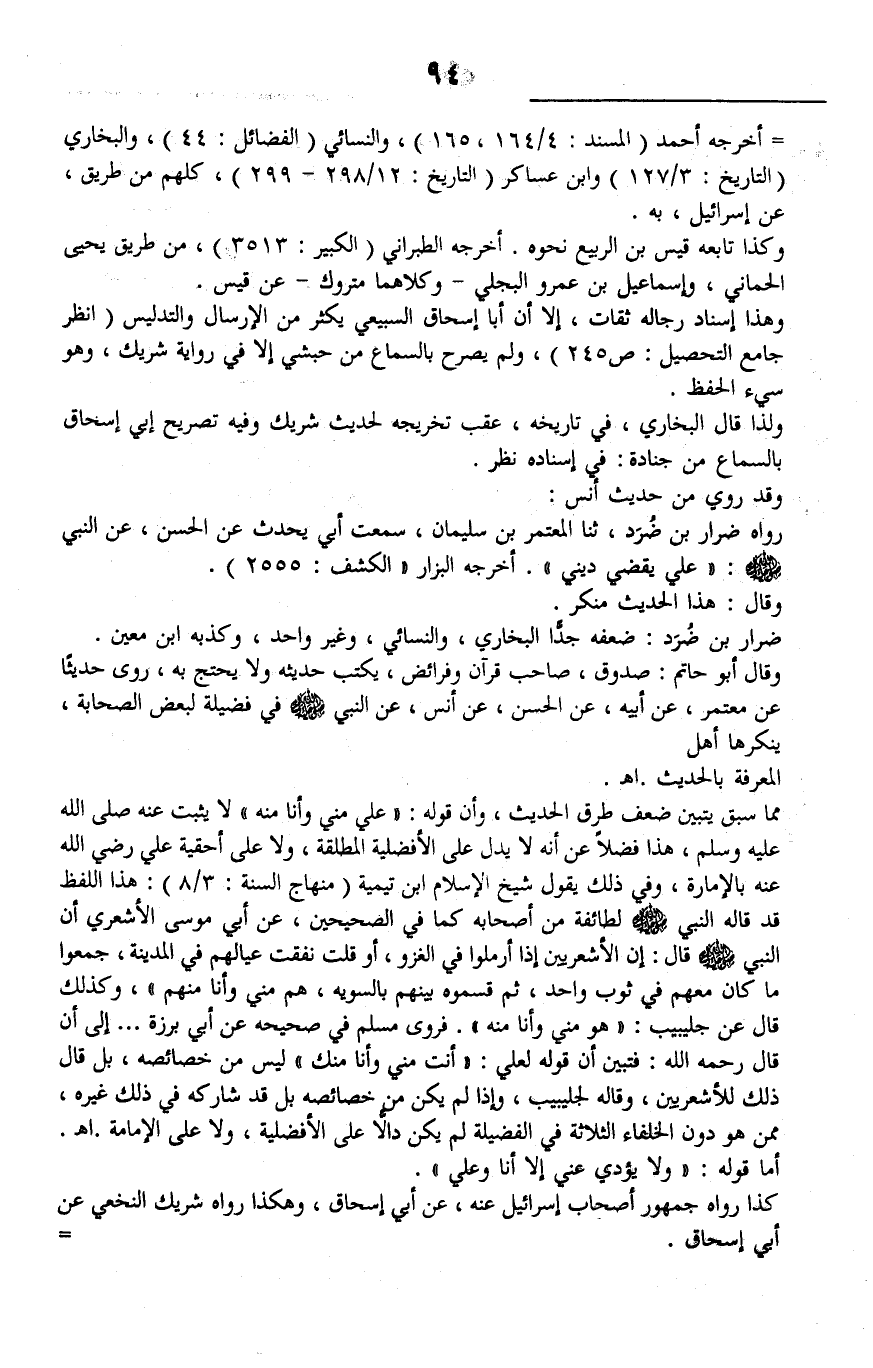 ٩٤
= أخرجه أحمد ( المسند : ١٦٤/٤ ، ١٦٥ ) ، والنسائي ( الفضائل : ٤٤ ) ، والبخاري
( التاريخ : ١٢٧/٣ ) وابن عساكر ( التاريخ : ٢٩٨/١٢ - ٢٩٩ ) ، كلهم من طريق ،
عن إسرائيل ، به .
وكذا تابعه قيس بن الربيع نحوه . أخرجه الطبراني ( الكبير : ٣٥١٣ ) ، من طريق يحيى
الحماني ، وإسماعيل بن عمرو البجلي - وكلاهما متروك - عن قيس .
وهذا إسناد رجاله ثقات ، إلا أن أبا إسحاق السبيعي يكثر من الإرسال والتدليس ( انظر
جامع التحصيل : ص٢٤٥ ) ، ولم يصرح بالسماع من حبشي إلا في رواية شريك ، وهو
سيء الحفظ .
ولذا قال البخاري ، في تاريخه ، عقب تخريجه لحديث شريك وفيه تصريح إبي إسحاق
بالسماع من جنادة : في إسناده نظر .
وقد روي من حديث أنس :
رواه ضرار بن صُرَد ، ثنا المعتمر بن سليمان ، سمعت أبي يحدث عن الحسن ، عن النبي
ﷺ : « علي يقضي ديني » . أخرجه البزار « الكشف : ٢٥٥٥ ) .
وقال : هذا الحديث منكر .
ضرار بن صُرَد : ضعفه جدًّا البخاري ، والنسائي ، وغير واحد ، وكذبه ابن معين .
وقال أبو حاتم : صدوق ، صاحب قرآن وفرائض ، يكتب حديثه ولا يحتج به ، روى حديثًا
عن معتمر ، عن أبيه ، عن الحسن ، عن أنس ، عن النبي ﷺ في فضيلة لبعض الصحابة ،
ينكرها أهل
المعرفة بالحديث .اهـ .
مما سبق يتبين ضعف طرق الحديث ، وأن قوله : « علي مني وأنا منه » لا يثبت عنه صلى الله
عليه وسلم ، هذا فضلاً عن أنه لا يدل على الأفضلية المطلقة ، ولا على أحقية علي رضي الله
عنه بالإمارة ، وفي ذلك يقول شيخ الإسلام ابن تيمية ( منهاج السنة : ٨/٣ ) : هذا اللفظ
قد قاله النبي ﷺ لطائفة من أصحابه كما في الصحيحين ، عن أبي موسى الأشعري أن
النبي ﷺ قال : إن الأشعريين إذا أرملوا في الغزو ، أو قلت نفقت عيالهم في المدينة ، جمعوا
ما كان معهم في ثوب واحد ، ثم قسموه بينهم بالسويه ، هم مني وأنا منهم » ، وكذلك
قال عن جليبيب : « هو مني وأنا منه » . فروى مسلم في صحيحه عن أبي برزة ... إلى أن
قال رحمه الله : فتبين أن قوله لعلي : « أنت مني وأنا منك » ليس من خصائصه ، بل قال
ذلك للأشعريين ، وقاله لجليبيب ، وإذا لم يكن من خصائصه بل قد شاركه في ذلك غيره ،
ممن هو دون الخلفاء الثلاثة في الفضيلة لم يكن دالًّا على الأفضلية ، ولا على الإمامة .اهـ .
أما قوله : « ولا يؤدي عني إلا أنا وعلي » .
كذا رواه جمهور أصحاب إسرائيل عنه ، عن أبي إسحاق ، وهكذا رواه شريك النخعي عن
أبي إسحاق . =